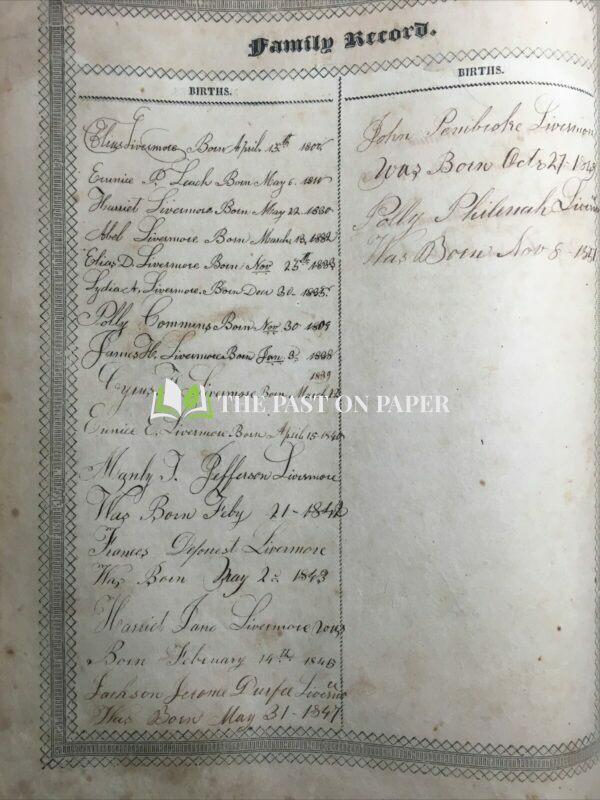 Family Record.
BIRTHS.
Elias Livermore Born April 15th
Eunice P. Leach Born May 6. 1810
Harriet Livermore Born May 22. 1830
Abel Livermore Born March 13, 1832
Elias D. Livermore Born Nov 25th 1833
Lydia A. Livermore. Born Decr 30. 1835.
Polly Commins Born Nov 30 1809
James H. Livermore Born Jan. 3. 1838
1839
Cyrus Livermore Born March
Eunice E. Livermore Born April 15-1840
Manly T. Jefferson Livermore
Was Born Feby 21- 1842
Frances Livermore
Was Born May 2. 1843
Harriet Jane Livermore was
Born February 14th 1845
Jackson Jerome Durfee
Was Born May 31- 1847
BIRTHS.
John Pembroke Livermore
Was Born Octr 27-
Polly Philenah
Was Born Nov 8-
THE PAST ON PAPER